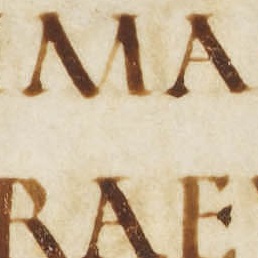 MA
RAE